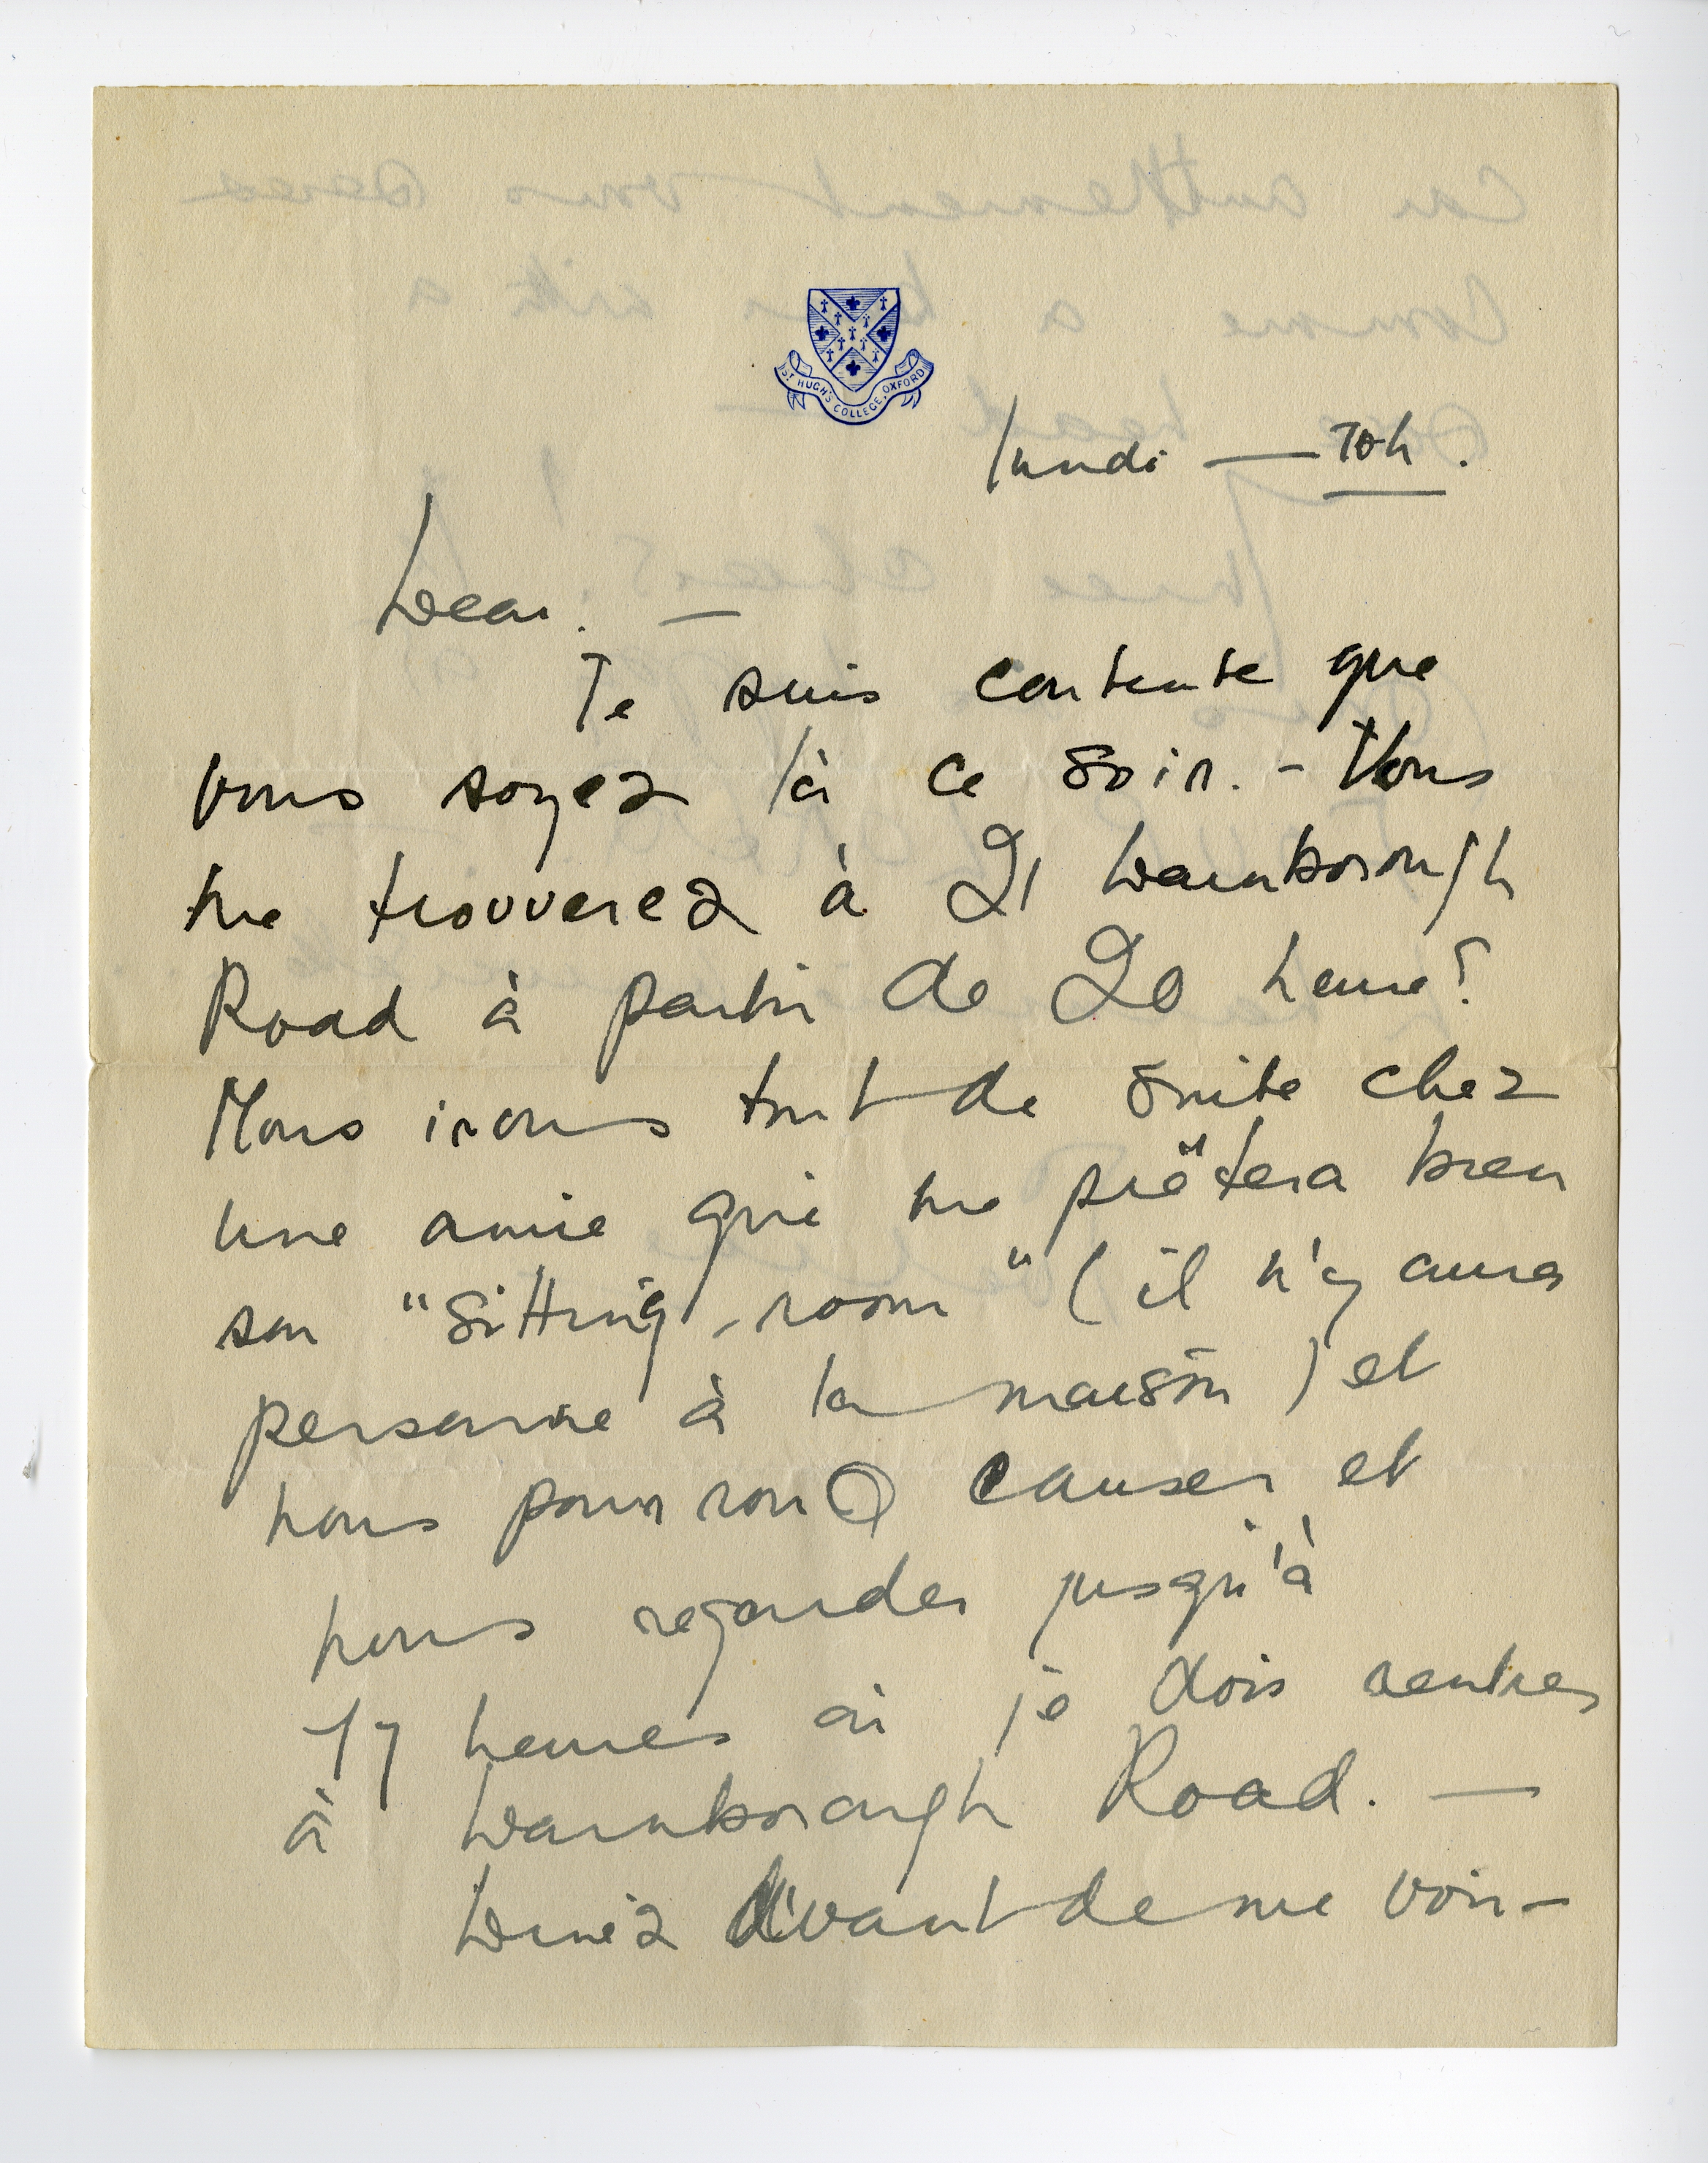 ST HUGH'S COLLEGE, OXFORD
lundi — 10h.
Dear. —
Je suis contente que
vous soyez là ce soir. - Vous
me trouverez à 21 Warnborough
Road à partir de 20 heures
Nous irons tout de suite chez
une amie qui me prêtera bien
son "sitting-room" (il n'y aura
personne à la maison) et
nous pourrons causer et
nous regarder jusqu'à
heures où je dois rentrer
à Warnborough Road. —
Dinez avant de me voir -